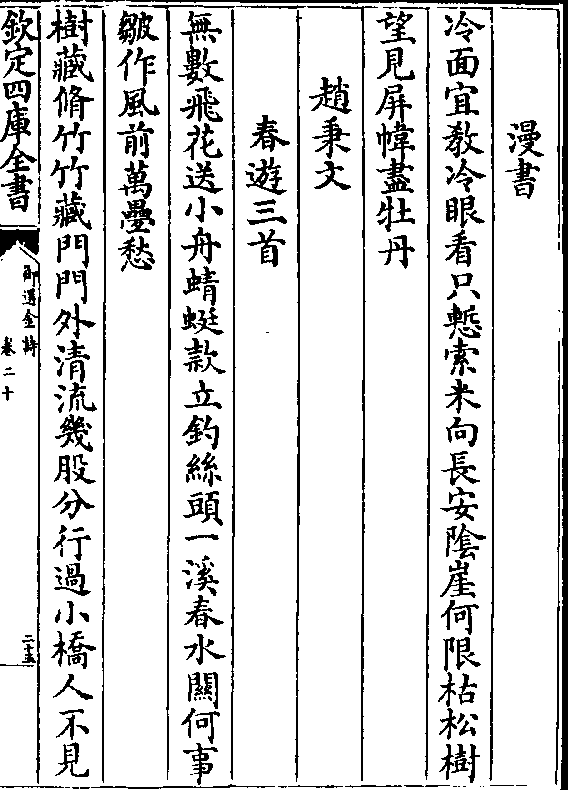 漫書
冷面宜教冷眼看只慙索米向長安陰崖何限枯松樹
望見屏幃盡牡丹
趙秉文
春遊三首
無數飛花送小舟蜻蜓款立釣絲頭一溪春水關何事
皺作風前萬疊愁
樹藏脩竹竹藏門門外清流幾股分行過小橋人不見
欽定四庫全書
御選金詩
卷二十
二十五